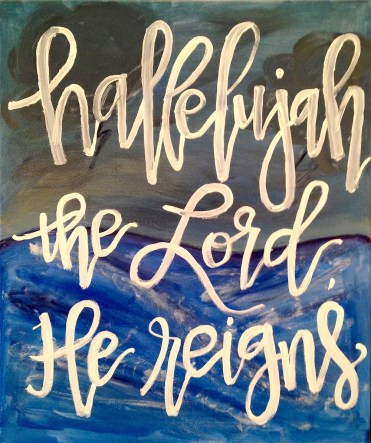 hallelujah
the Lord,
He reigns